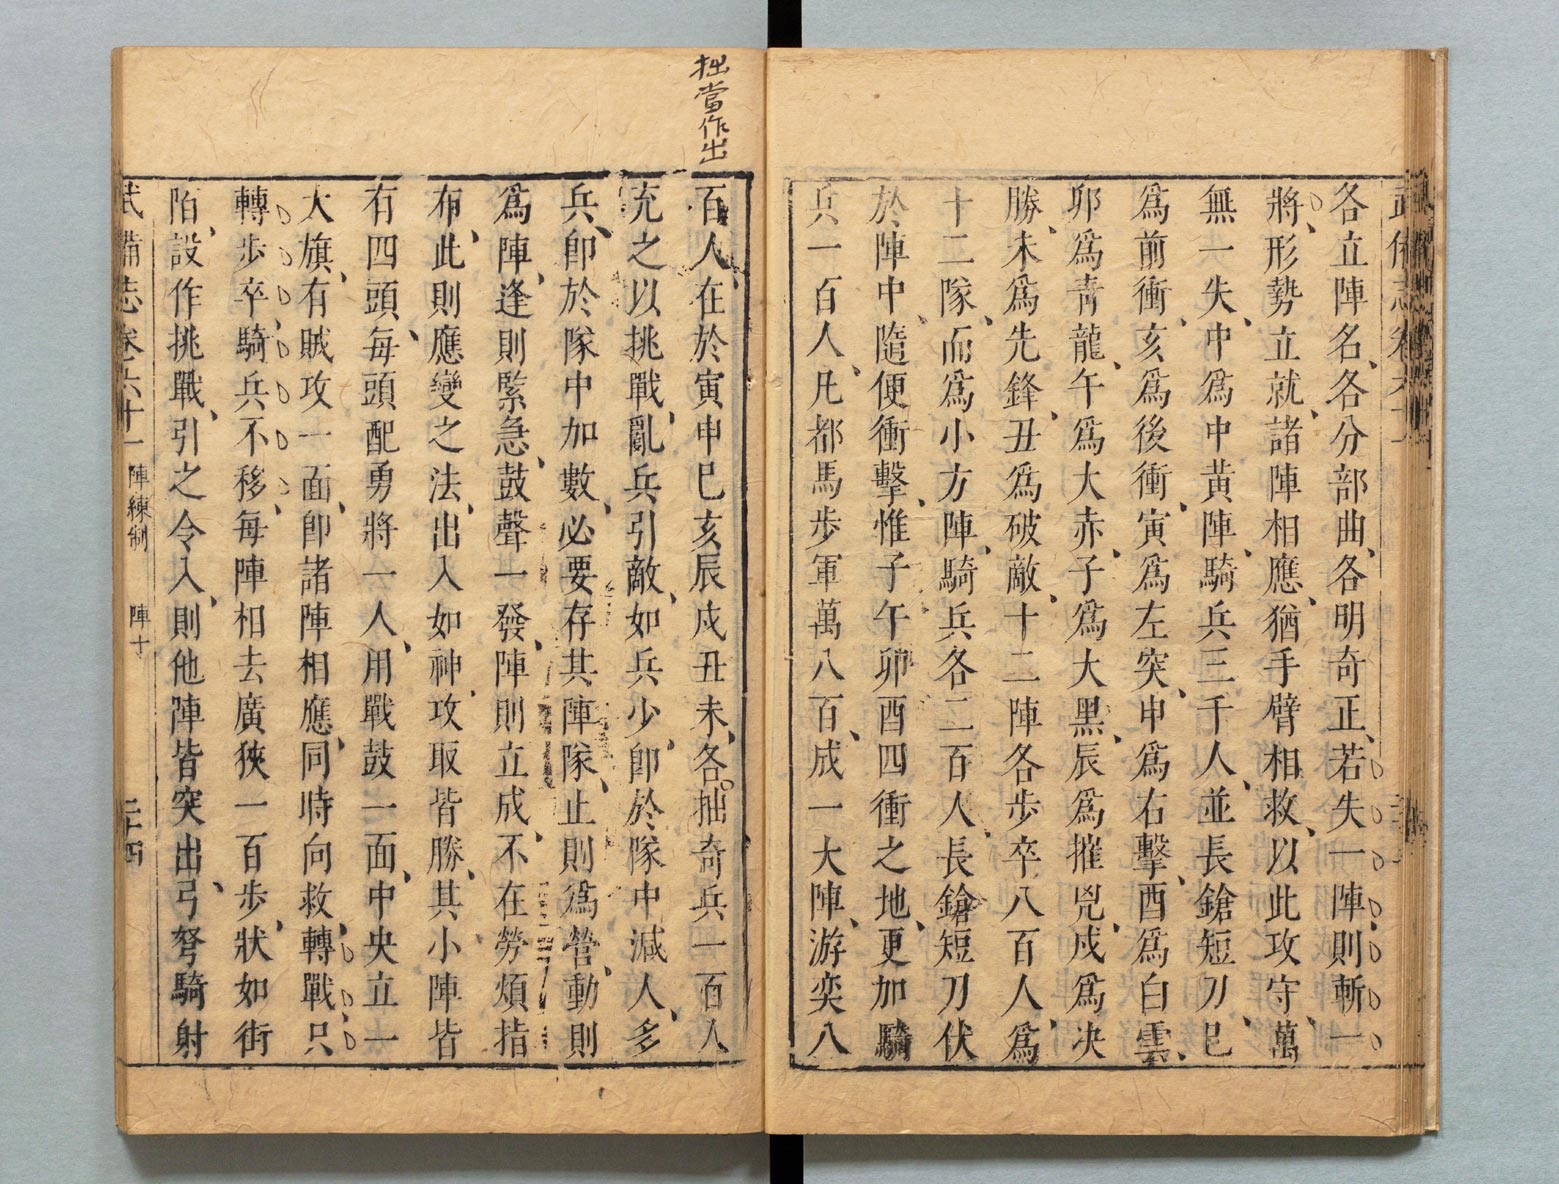 各立陣名、各分部曲、各明奇正、若失一陣、則斬一
將、形勢立就、諸陣相應、猶手臂相救、以此攻守、萬
無一失、中爲中黃陣、騎兵三千人、並長鎗短刀、巳
爲前衝、亥爲後衝、寅爲左突、申爲右擊、酉爲白雲、
卯爲青龍、午爲大赤、子爲大黑、辰爲摧兇、戌爲决
勝、未爲先鋒、丑爲破敵、十二陣各步卒八百人、爲
十二隊、而爲小方陣、騎兵各二百人、長鎗短刀伏
於陣中、隨便衝擊、惟子午卯酉四衝之地、更加騎
兵一百人、凡都馬步軍萬八百、成一大陣、游奕八
拙當作出
百人、在於寅申巳亥辰戌丑未、各拙奇兵一百人
充之以挑戰、亂兵引敵、如兵少、卽於隊中減人、多
兵、卽於隊中加數、必要存其陣隊、止則爲營、動則
爲陣、逢則緊急、鼓聲一發、陣則立成、不在勞煩指
布、此則應變之法、出入如神、攻取皆勝、其小陣皆
有四頭、每頭配勇將一人、用戰鼓一面、中央立一
大旗、有賊攻一面、卽諸陣相應、同時向救、轉戰、只
轉步卒、騎兵不移、每陣相去廣狹一百步、狀如街
陌、設作挑戰、引之令入、則他陣皆突出、弓弩騎射
武備志卷六十一 陣練制 陣十 二十四